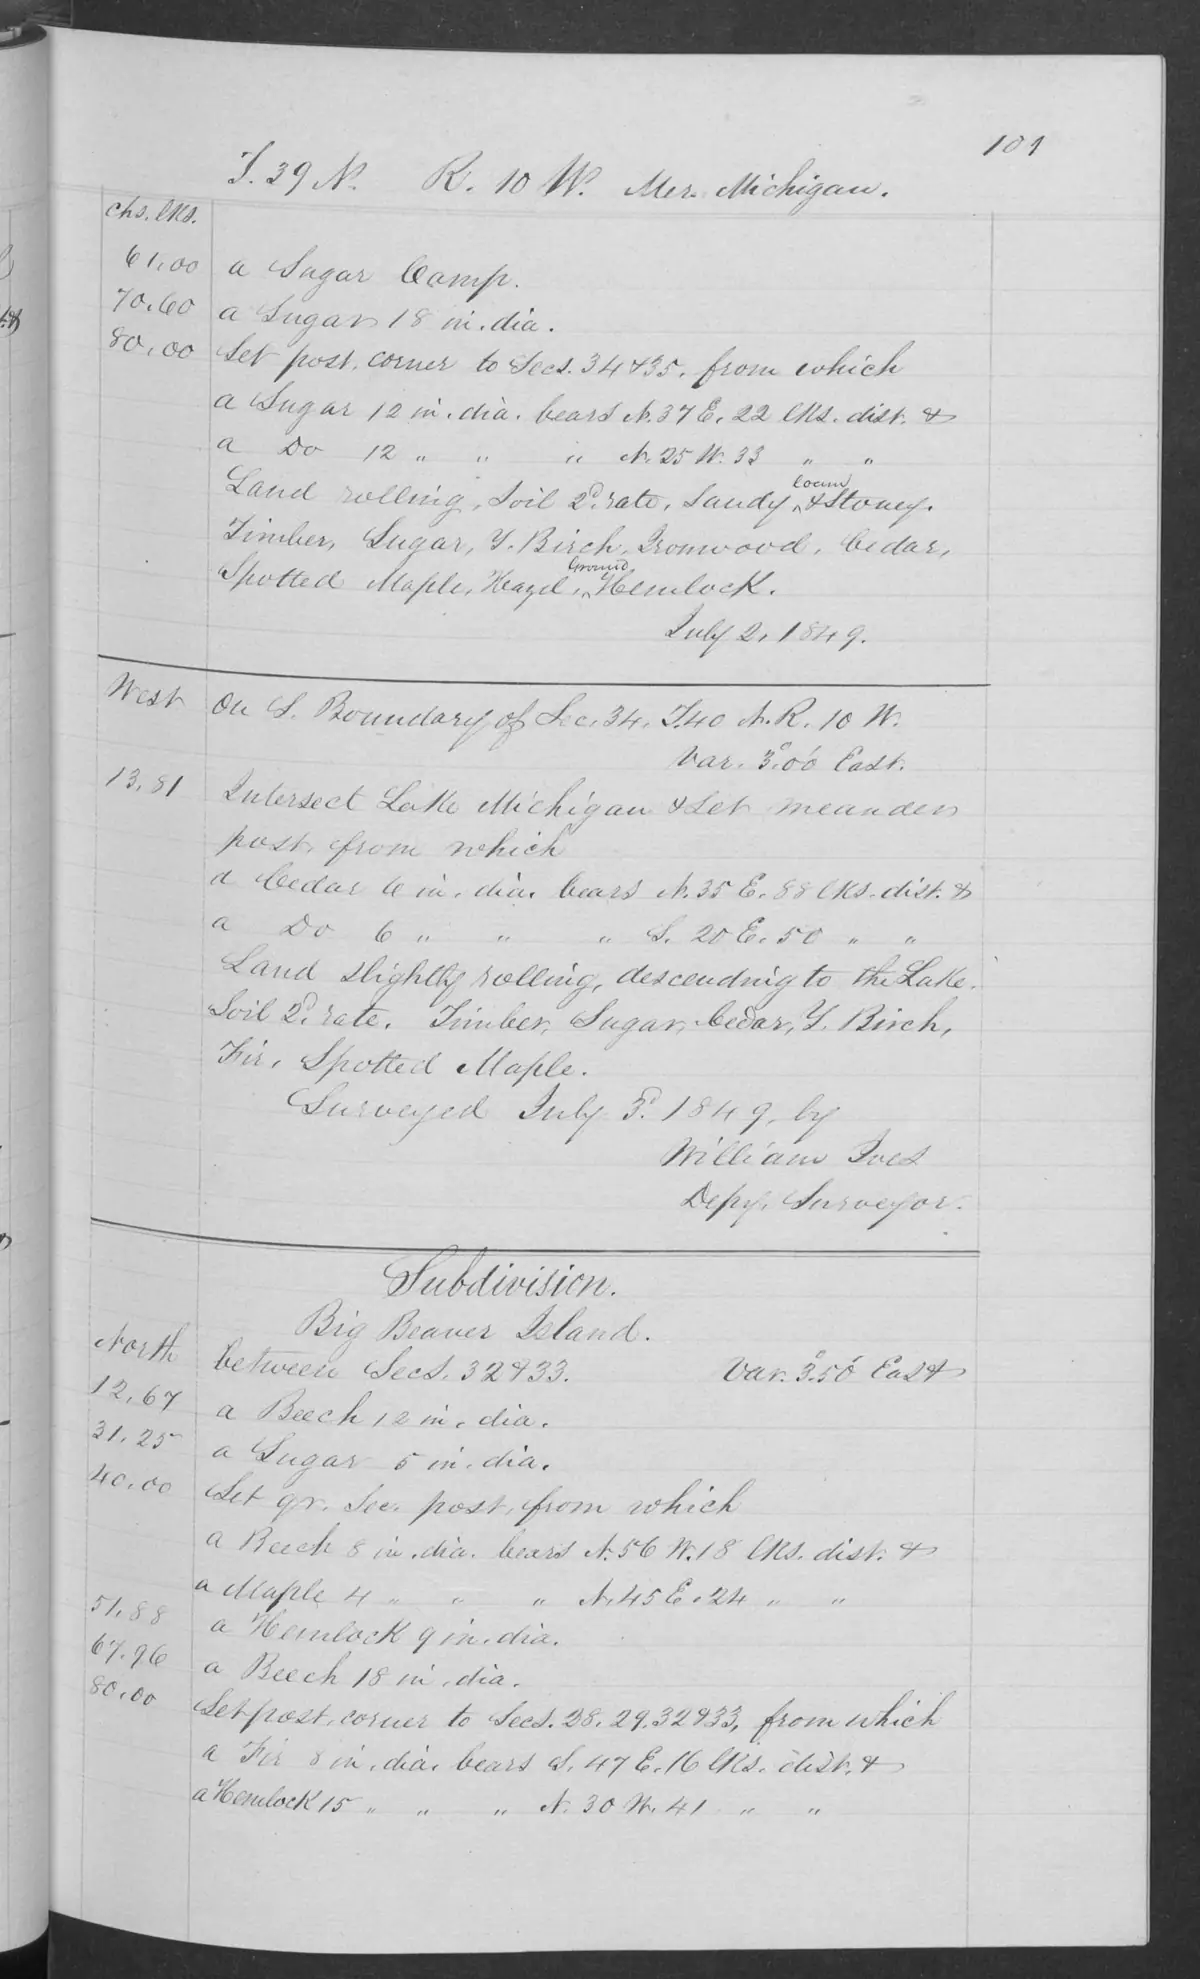 101
T. 39 N. R. 10 W. Mer. Michigan.
chs. lks.
61.00 a Sugar Camp.
70.60 a Sugar 18 in. dia.
80.00 Set post, corner to Secs. 34 & 35, from which
a Sugar 12 in. dia. bears N. 37 E. 22 lks. dist. &
a Do 12 " " " N. 25 W. 33 " "
Land rolling, Soil 2d. rate, Sandy loam & Stoney.
Timber, Sugar, Y. Birch, Ironwood, Cedar,
Spotted Maple, Hazel, Ground Hemlock.
July 2, 1849.
West On S. Boundary of Sec. 34, T. 40 N. R. 10 W.
Var. 3°.00' East.
13.81 Intersect Lake Michigan & Set meander
post, from which
a Cedar 6 in. dia. bears N. 35 E. 88 lks. dist. &
a Do 6 " " " S. 20 E. 50 " "
Land slightly rolling, descending to the Lake.
Soil 2d. rate. Timber, Sugar, Cedar, Y. Birch,
Fir, Spotted Maple.
Surveyed July 3d. 1849, by
William Ives
Depy. Surveyor.
Subdivision.
Big Beaver Island.
North between Secs. 32 & 33. Var. 3°.50' East
12.67 a Beech 12 in. dia.
31.25 a Sugar 5 in. dia.
40.00 Set qr. Sec. post, from which
a Beech 8 in. dia. bears N. 56 W. 18 lks. dist. &
a Maple 4 " " " N. 45 E. 24 " "
51.88 a Hemlock 9 in. dia.
67.96 a Beech 18 in. dia.
80.00 Set post, corner to Secs. 28. 29. 32 & 33, from which
a Fir 8 in. dia. bears S. 47 E. 16 lks. dist. &
a Hemlock 15 " " " N. 30 W. 41 " "